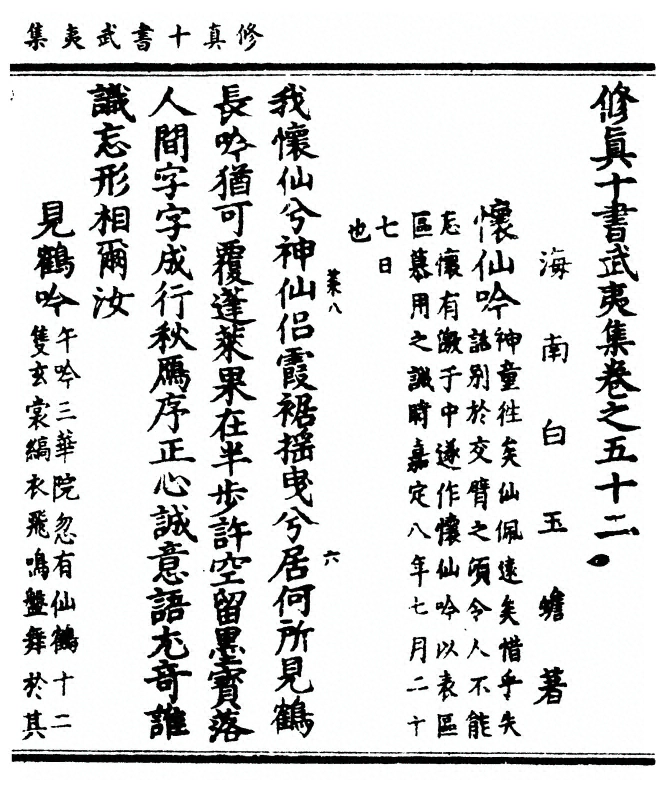 修真十書武夷集
修真十書武夷集卷之五十二
海南白玉蟾著
懷仙吟
神童徃矣仙佩遠矣惜乎失
誌別於交臂之頃令人不能
忘懷有激于中遂作懷仙吟以表區
區慕用之誠時嘉定八年七月二十
七日
也
菜八
六
我懷仙兮神仙侣霞裾摇曳兮居何所見鶴
長吟猶可覆蓬萊果在半步許空留墨寶落
人間字字成行秋鴈序正心誠意語尤奇誰
識忘形相爾汝
見鶴吟
午吟三華院忽有仙鶴十二
隻玄裳縞衣飛鳴盤舞於其